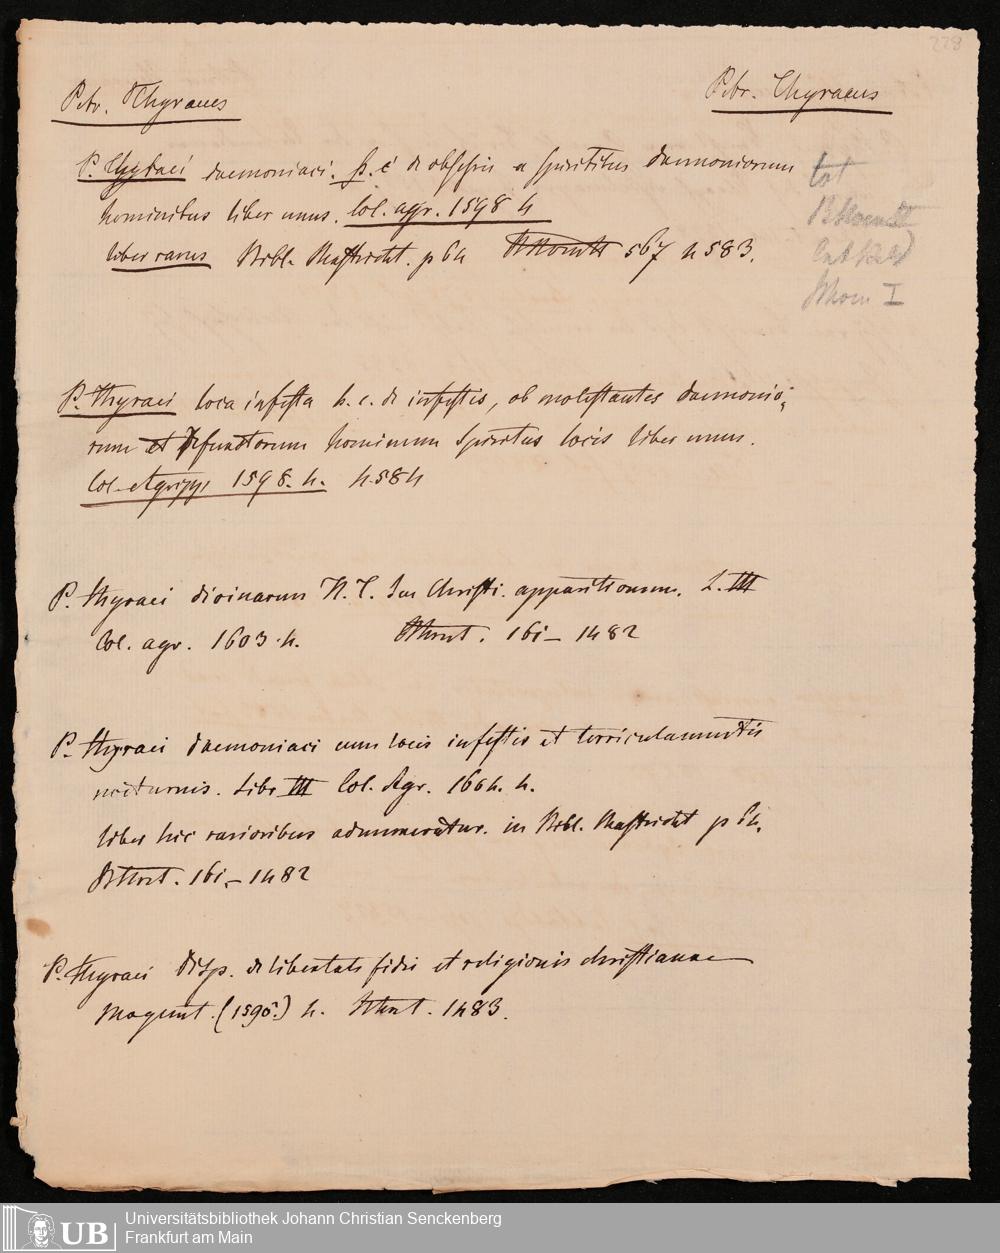 228
Petr. Thyraeus
Petr. Thyraeus
P. Thyraei daemoniaci. h. e de obsessis a spiritibus daemoniorum
hominibus liber unus. Col. agr. 1598 4
liber rarus Bibl. Mastricht. p 64 567 n 583.
tot
I
P. Thyraei loca infesta h. e. de infestis, ob molestantes daemonio-
rum et defunctorum hominum spiritus locis liber unus.
Col. Agripp. 1598. 4. n. 584
P. Thyraei divinarum N. T. seu Christi. apparitionum. L. III
Col. agr. 1603. 4. 161- 1482
P. Thyraei daemoniaci cum locis infestis et terriculamentis
nocturnis. Libr III Col. Agr. 1604. 4.
liber hic rarioribus adnumeratur. in Bibl. Mastricht p 64.
161- 1482
P. Thyraei Disp. de libertate fidei et religionis christianae
Mogunt. (1590.) 4. 1483.
UB
Universitätsbibliothek Johann Christian Senckenberg
Frankfurt am Main